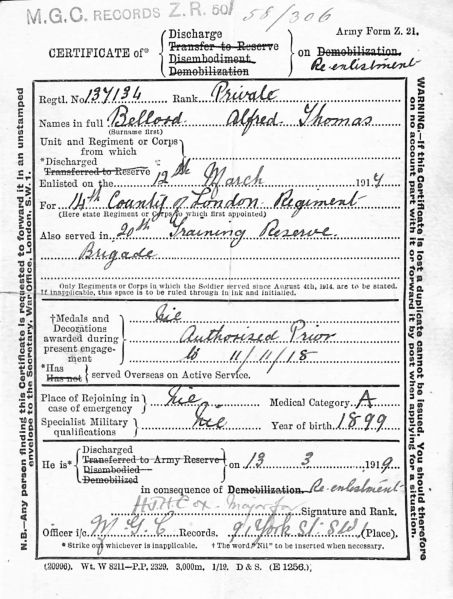 M.G.C. RECORDS Z.R. 50/ 58/306
Army Form Z. 21.
Discharge
Transfer to Reserve
CERTIFICATE of* Disembodiment on Demobilization.
Demobilization Re-enlistment
Regtl. No. 137134 Rank Private
Names in full Bellord Alfred Thomas
(Surname first)
Unit and Regiment or Corps
from which
*Discharged
Transferred to Reserve
Enlisted on the 12th March 1917
For 14th County of London Regiment
(Here state Regiment or Corps to which first appointed)
Also served in 20th Training Reserve
Brigade
Only Regiments or Corps in which the Soldier served since August 4th, 1914, are to be stated.
If inapplicable, this space is to be ruled through in ink and initialled.
†Medals and Nil
Decorations Authorised Prior
awarded during
present engage- to 11/11/18
ment
*Has
Has not served Overseas on Active Service.
Place of Rejoining in Nil Medical Category A
case of emergency
Specialist Military Nil Year of birth 1899
qualifications
Discharged
He is* Transferred to Army Reserve on 13 3 1919
Disembodied
Demobilized
in consequence of Demobilization. Re-enlistment
Signature and Rank.
Officer i/c M.G.C. Records. 91 York St SW1 (Place).
* Strike out whichever is inapplicable. † The word "Nil" to be inserted when necessary.
(20996). Wt. W 8211—P.P. 2329. 3,000m. 1/19. D & S. (E 1256.)
N.B.—Any person finding this Certificate is requested to forward it in an unstamped
envelope to the Secretary, War Office, London, S.W. 1.
WARNING.—If this Certificate is lost a duplicate cannot be issued. You should therefore
on no account part with it or forward it by post when applying for a situation.